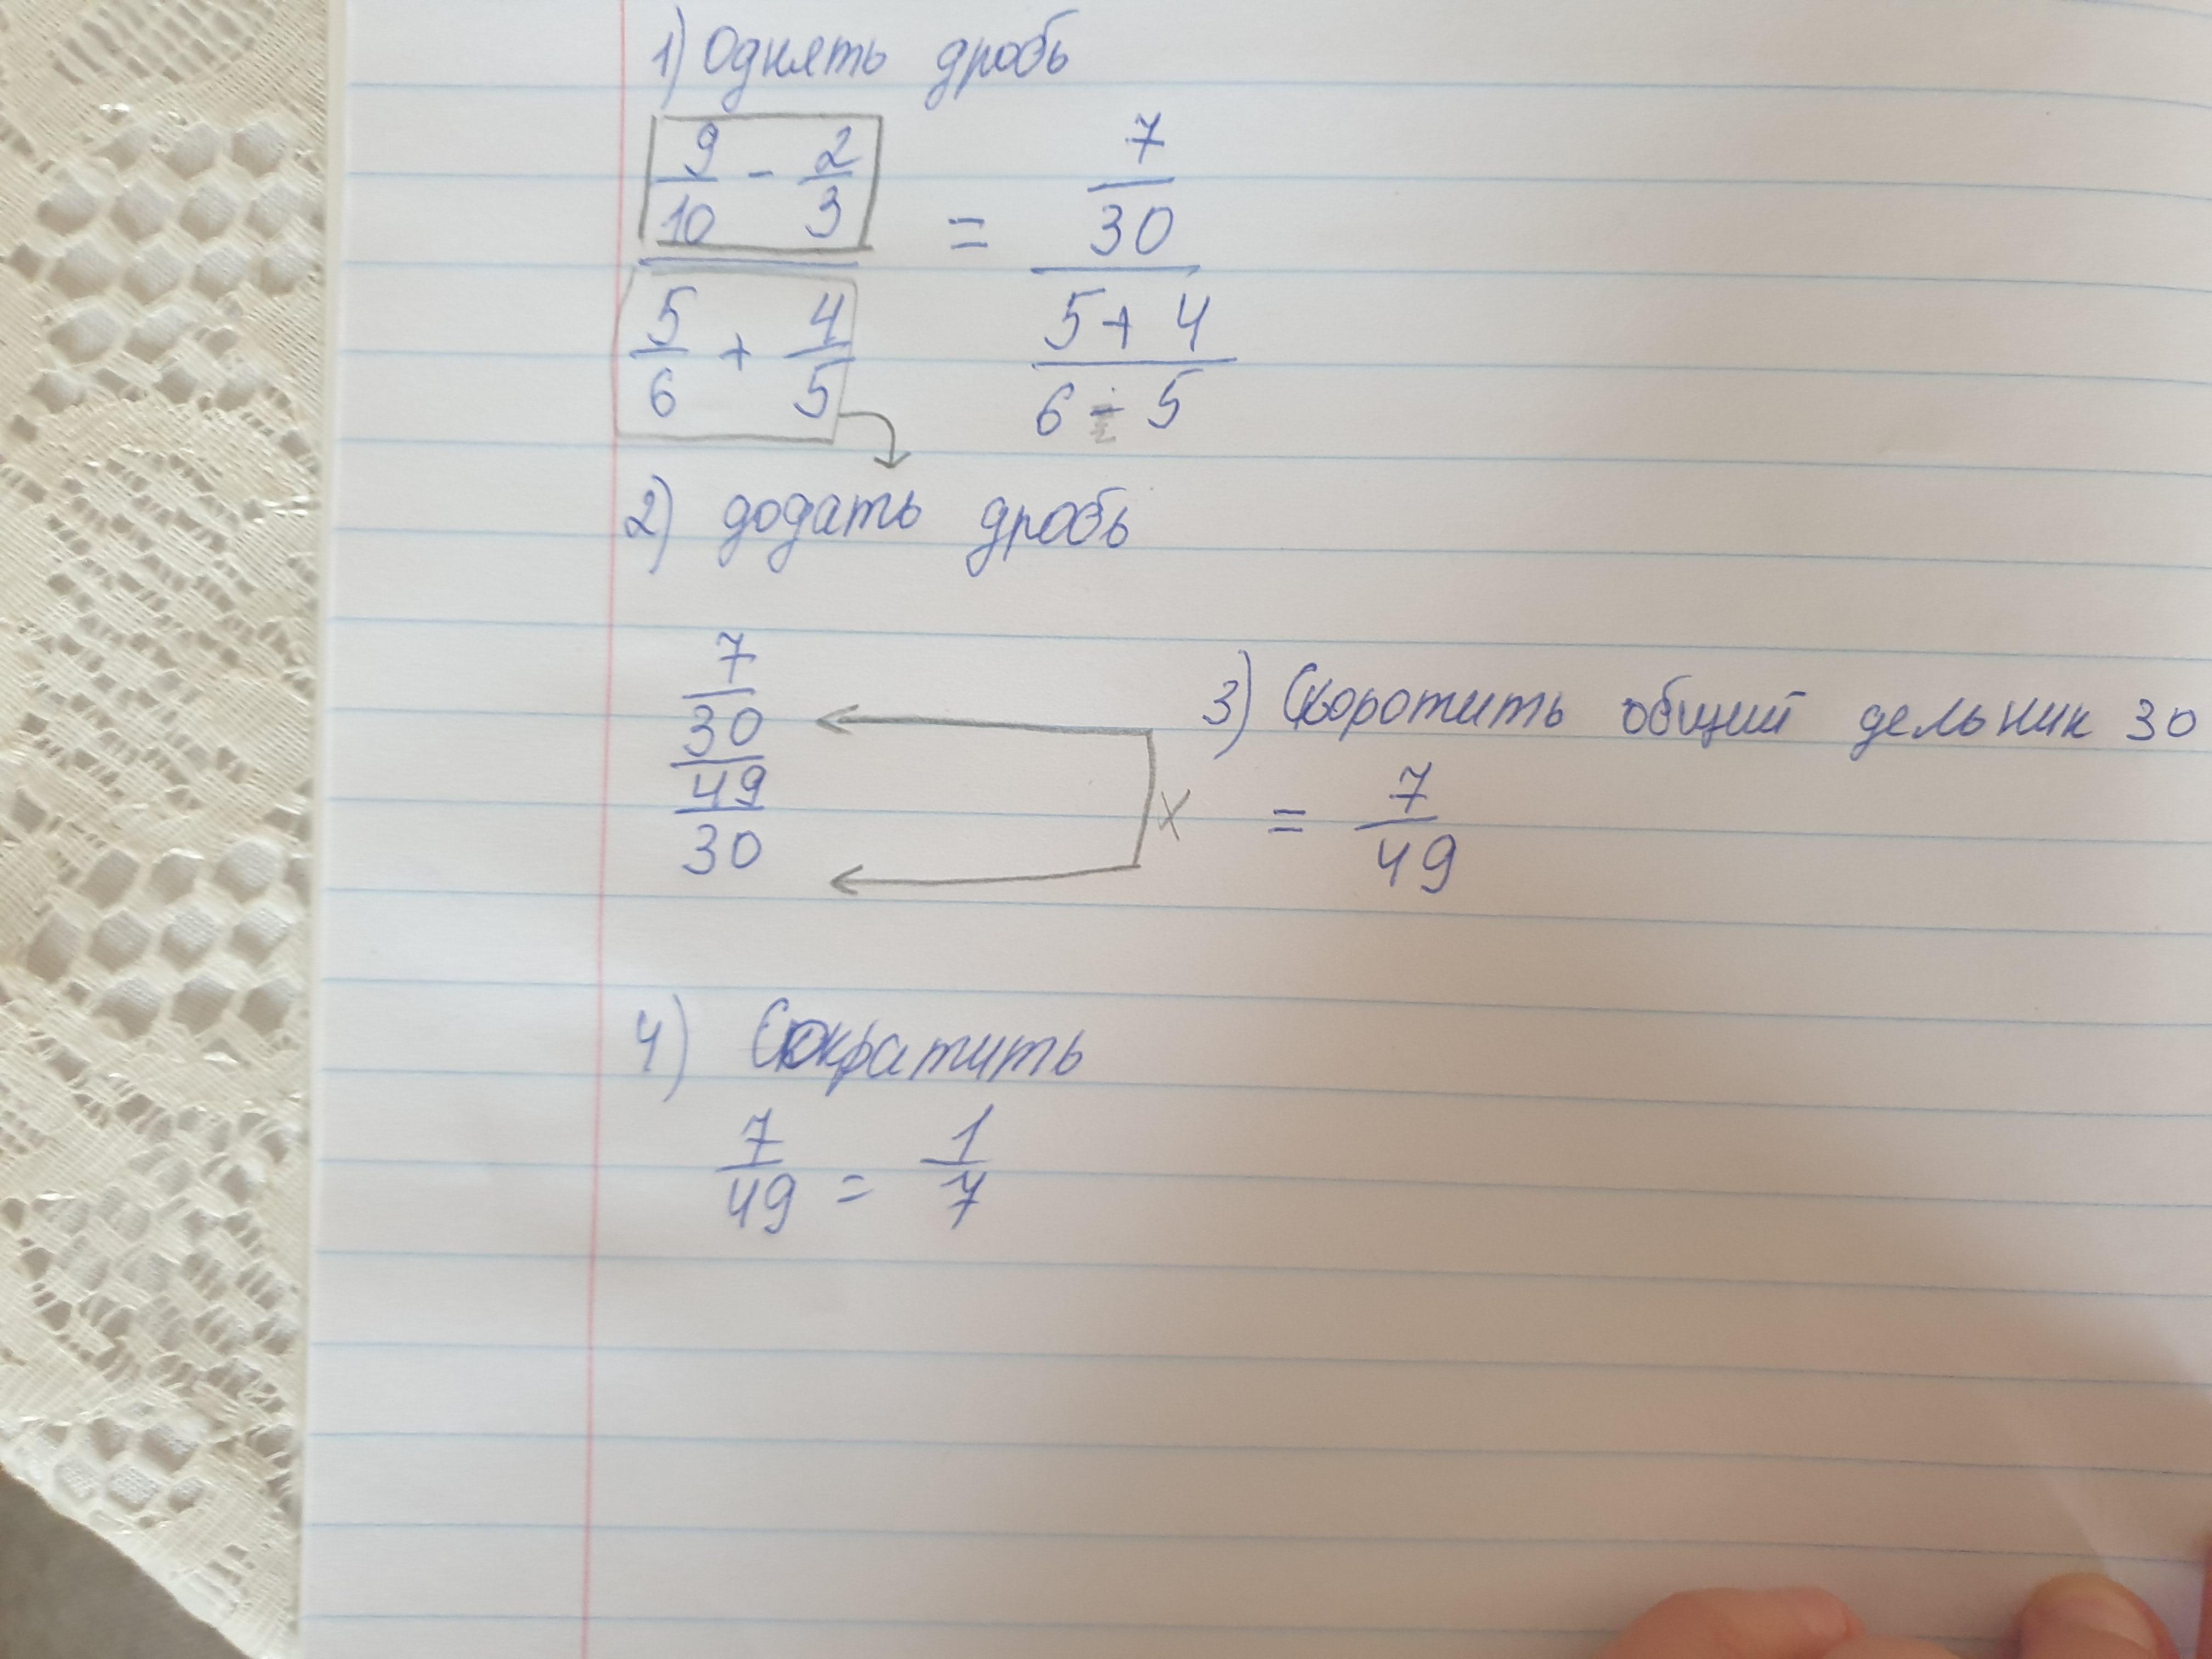 1) Однять дробь
9/10 - 2/3 = 7/30
5/6 + 4/5 5 + 4
6 - 5
2) додать дробь
7/30
49/30
3) Скоротить общий дельник 30
x = 7/49
4) Сократить
7/49 = 1/7